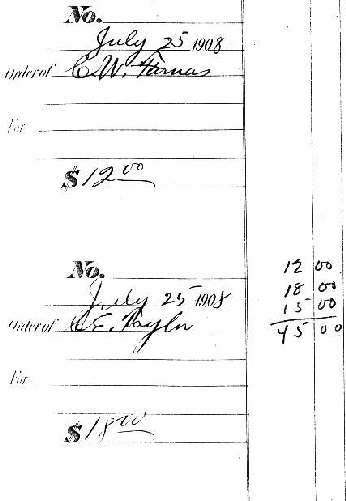 No.
July 25 1908
Order of C. W. Tomas
For
$12.00
No.
July 25 1908
Order of C. E. Taylor
For
$18.00
12 00
18 00
15 00
45 00